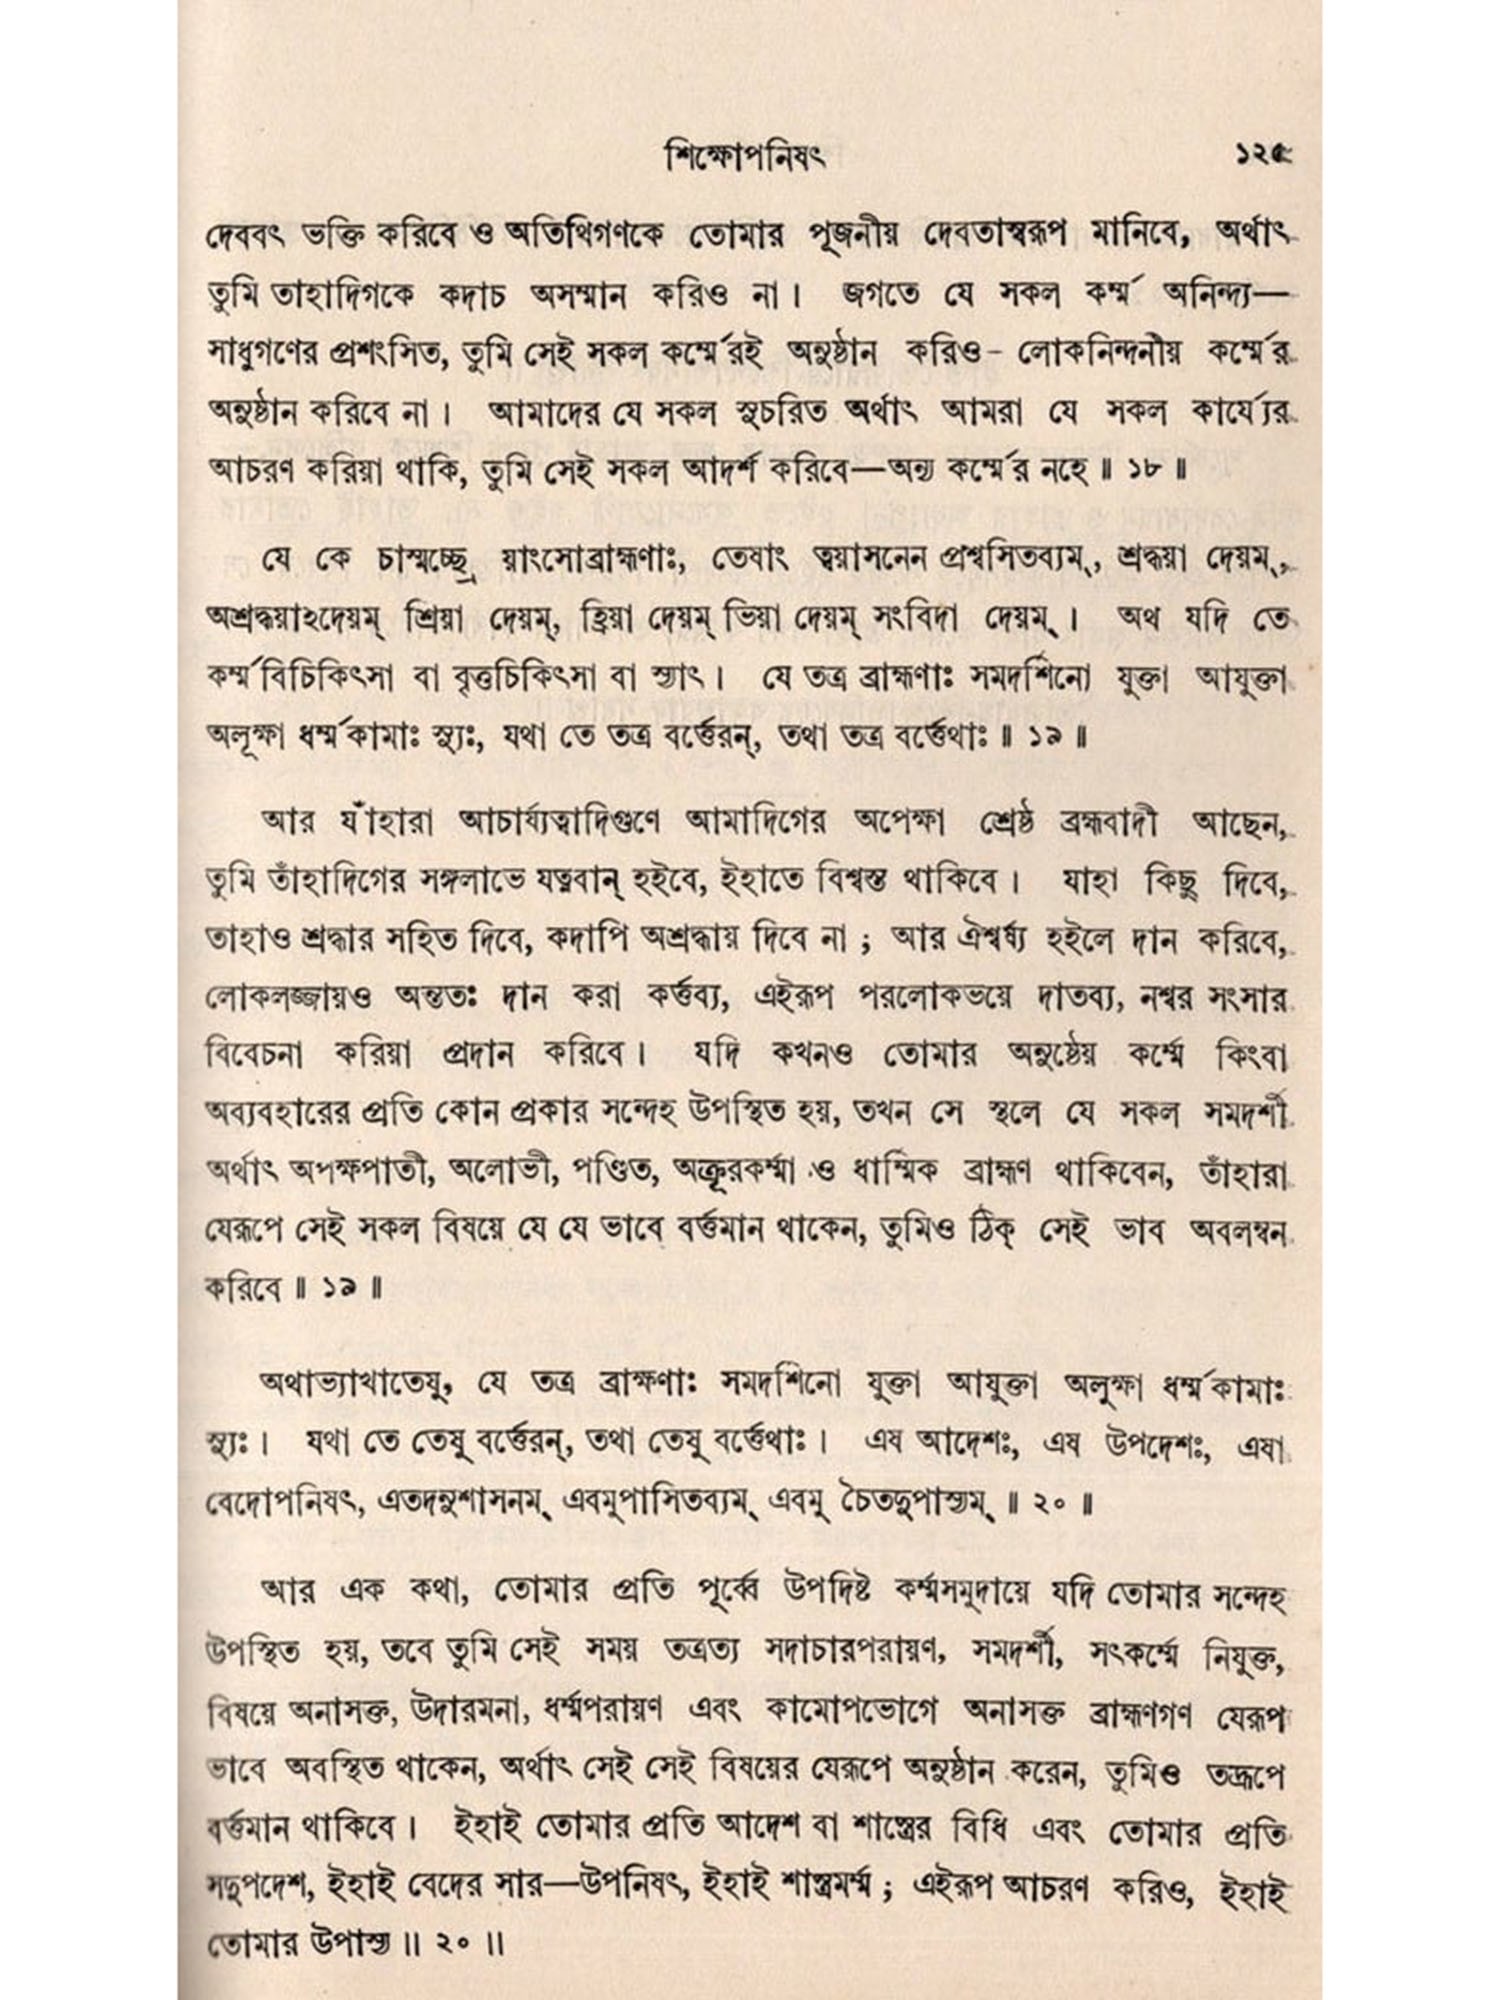 শিক্ষোপনিষৎ ১২৫
দেববৎ ভক্তি করিবে ও অতিথিগণকে তোমার পূজনীয় দেবতাস্বরূপ মানিবে, অর্থাৎ
তুমি তাহাদিগকে কদাচ অসম্মান করিও না। জগতে যে সকল কর্ম্ম অনিন্দ্য—
সাধুগণের প্রশংসিত, তুমি সেই সকল কর্ম্মেরই অনুষ্ঠান করিও - লোকনিন্দনীয় কর্ম্মের
অনুষ্ঠান করিবে না। আমাদের যে সকল সুচরিত অর্থাৎ আমরা যে সকল কার্য্যের
আচরণ করিয়া থাকি, তুমি সেই সকল আদর্শ করিবে—অন্য কর্ম্মের নহে॥ ১৮॥
যে কে চাস্মচ্ছ্রেয়াংসোব্রাহ্মণাঃ, তেষাং ত্বয়াসনেন প্রশ্বসিতব্যম্, শ্রদ্ধয়া দেয়ম্,
অশ্রদ্ধয়াঽদেয়ম্ শ্রিয়া দেয়ম্, হ্রিয়া দেয়ম্ ভিয়া দেয়ম্ সংবিদা দেয়ম্। অথ যদি তে
কর্ম্মবিচিকিৎসা বা বৃত্তচিকিৎসা বা স্যাৎ। যে তত্র ব্রাহ্মণাঃ সমদর্শিনো যুক্তা আযুক্তা
অলূক্ষা ধর্ম্মকামাঃ স্যুঃ, যথা তে তত্র বর্ত্তেরন্, তথা তত্র বর্ত্তেথাঃ॥ ১৯॥
আর যাঁহারা আচার্য্যত্বাদিগুণে আমাদিগের অপেক্ষা শ্রেষ্ঠ ব্রহ্মবাদী আছেন,
তুমি তাঁহাদিগের সঙ্গলাভে যত্নবান্ হইবে, ইহাতে বিশ্বস্ত থাকিবে। যাহা কিছু দিবে,
তাহাও শ্রদ্ধার সহিত দিবে, কদাপি অশ্রদ্ধায় দিবে না ; আর ঐশ্বর্ষ্য হইলে দান করিবে,
লোকলজ্জায়ও অন্ততঃ দান করা কর্ত্তব্য, এইরূপ পরলোকভয়ে দাতব্য, নশ্বর সংসার
বিবেচনা করিয়া প্রদান করিবে। যদি কখনও তোমার অনুষ্ঠেয় কর্ম্মে কিংবা
অব্যবহারের প্রতি কোন প্রকার সন্দেহ উপস্থিত হয়, তখন সে স্থলে যে সকল সমদর্শী
অর্থাৎ অপক্ষপাতী, অলোভী, পণ্ডিত, অক্রূরকর্ম্মা ও ধাম্মিক ব্রাহ্মণ থাকিবেন, তাঁহারা
যেরূপে সেই সকল বিষয়ে যে যে ভাবে বর্ত্তমান থাকেন, তুমিও ঠিক্ সেই ভাব অবলম্বন
করিবে॥ ১৯॥
অথাভ্যাখাতেষু, যে তত্র ব্রাহ্মণাঃ সমদর্শিনো যুক্তা আযুক্তা অলুক্ষা ধর্ম্মকামাঃ
স্যুঃ। যথা তে তেষু বর্ত্তেরন্, তথা তেষু বর্ত্তেথাঃ। এষ আদেশঃ, এষ উপদেশঃ, এষা
বেদোপনিষৎ, এতদনুশাসনম্ এবমুপাসিতব্যম্ এবমু চৈতদুপাস্যম্॥ ২০॥
আর এক কথা, তোমার প্রতি পূর্ব্বে উপদিষ্ট কর্ম্মসমুদায়ে যদি তোমার সন্দেহ
উপস্থিত হয়, তবে তুমি সেই সময় তত্রত্য সদাচারপরায়ণ, সমদর্শী, সৎকর্ম্মে নিযুক্ত,
বিষয়ে অনাসক্ত, উদারমনা, ধর্ম্মপরায়ণ এবং কামোপভোগে অনাসক্ত ব্রাহ্মণগণ যেরূপ
ভাবে অবস্থিত থাকেন, অর্থাৎ সেই সেই বিষয়ের যেরূপে অনুষ্ঠান করেন, তুমিও তদ্রূপে
বর্ত্তমান থাকিবে। ইহাই তোমার প্রতি আদেশ বা শাস্ত্রের বিধি এবং তোমার প্রতি
সদুপদেশ, ইহাই বেদের সার—উপনিষৎ, ইহাই শাস্ত্রমর্ম্ম ; এইরূপ আচরণ করিও, ইহাই
তোমার উপাস্য॥ ২০॥